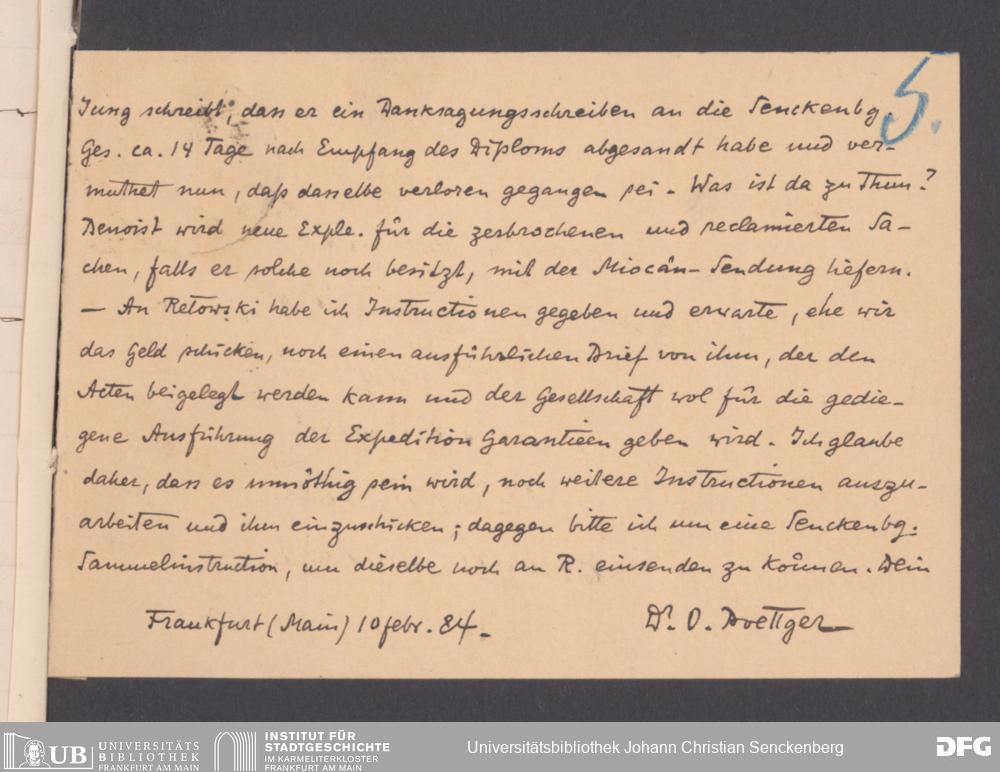 5.
Jung schreibt, dass er ein Danksagungsschreiben an die Senckenbg
Ges. ca. 14 Tage nach Empfang des Diploms abgesandt habe und ver-
muthet nun, daß dasselbe verloren gegangen sei. Was ist da zu Thun?
Benoist wird neue Exple. für die zerbrochenen und reclamierten Sa-
chen, falls er solche noch besitzt, mit der Miocän-Sendung liefern.
— An Retowski habe ich Instructionen gegeben und erwarte, ehe wir
das Geld schicken, noch einen ausführlichen Brief von ihm, der den
Acten beigelegt werden kann und der Gesellschaft wol für die gedie-
gene Ausführung der Expedition Garantieen geben wird. Ich glaube
daher, dass es unnöthig sein wird, noch weitere Instructionen auszu-
arbeiten und ihm einzuschicken; dagegen bitte ich um eine Senckenbg.
Sammelinstruction, um dieselbe noch an R. einsenden zu können. Dein
Frankfurt (Main) 10 febr. 84. Dr. O. Boettger
UB UNIVERSITÄTS BIBLIOTHEK FRANKFURT AM MAIN
INSTITUT FÜR STADTGESCHICHTE IM KARMELITERKLOSTER FRANKFURT AM MAIN
Universitätsbibliothek Johann Christian Senckenberg
DFG